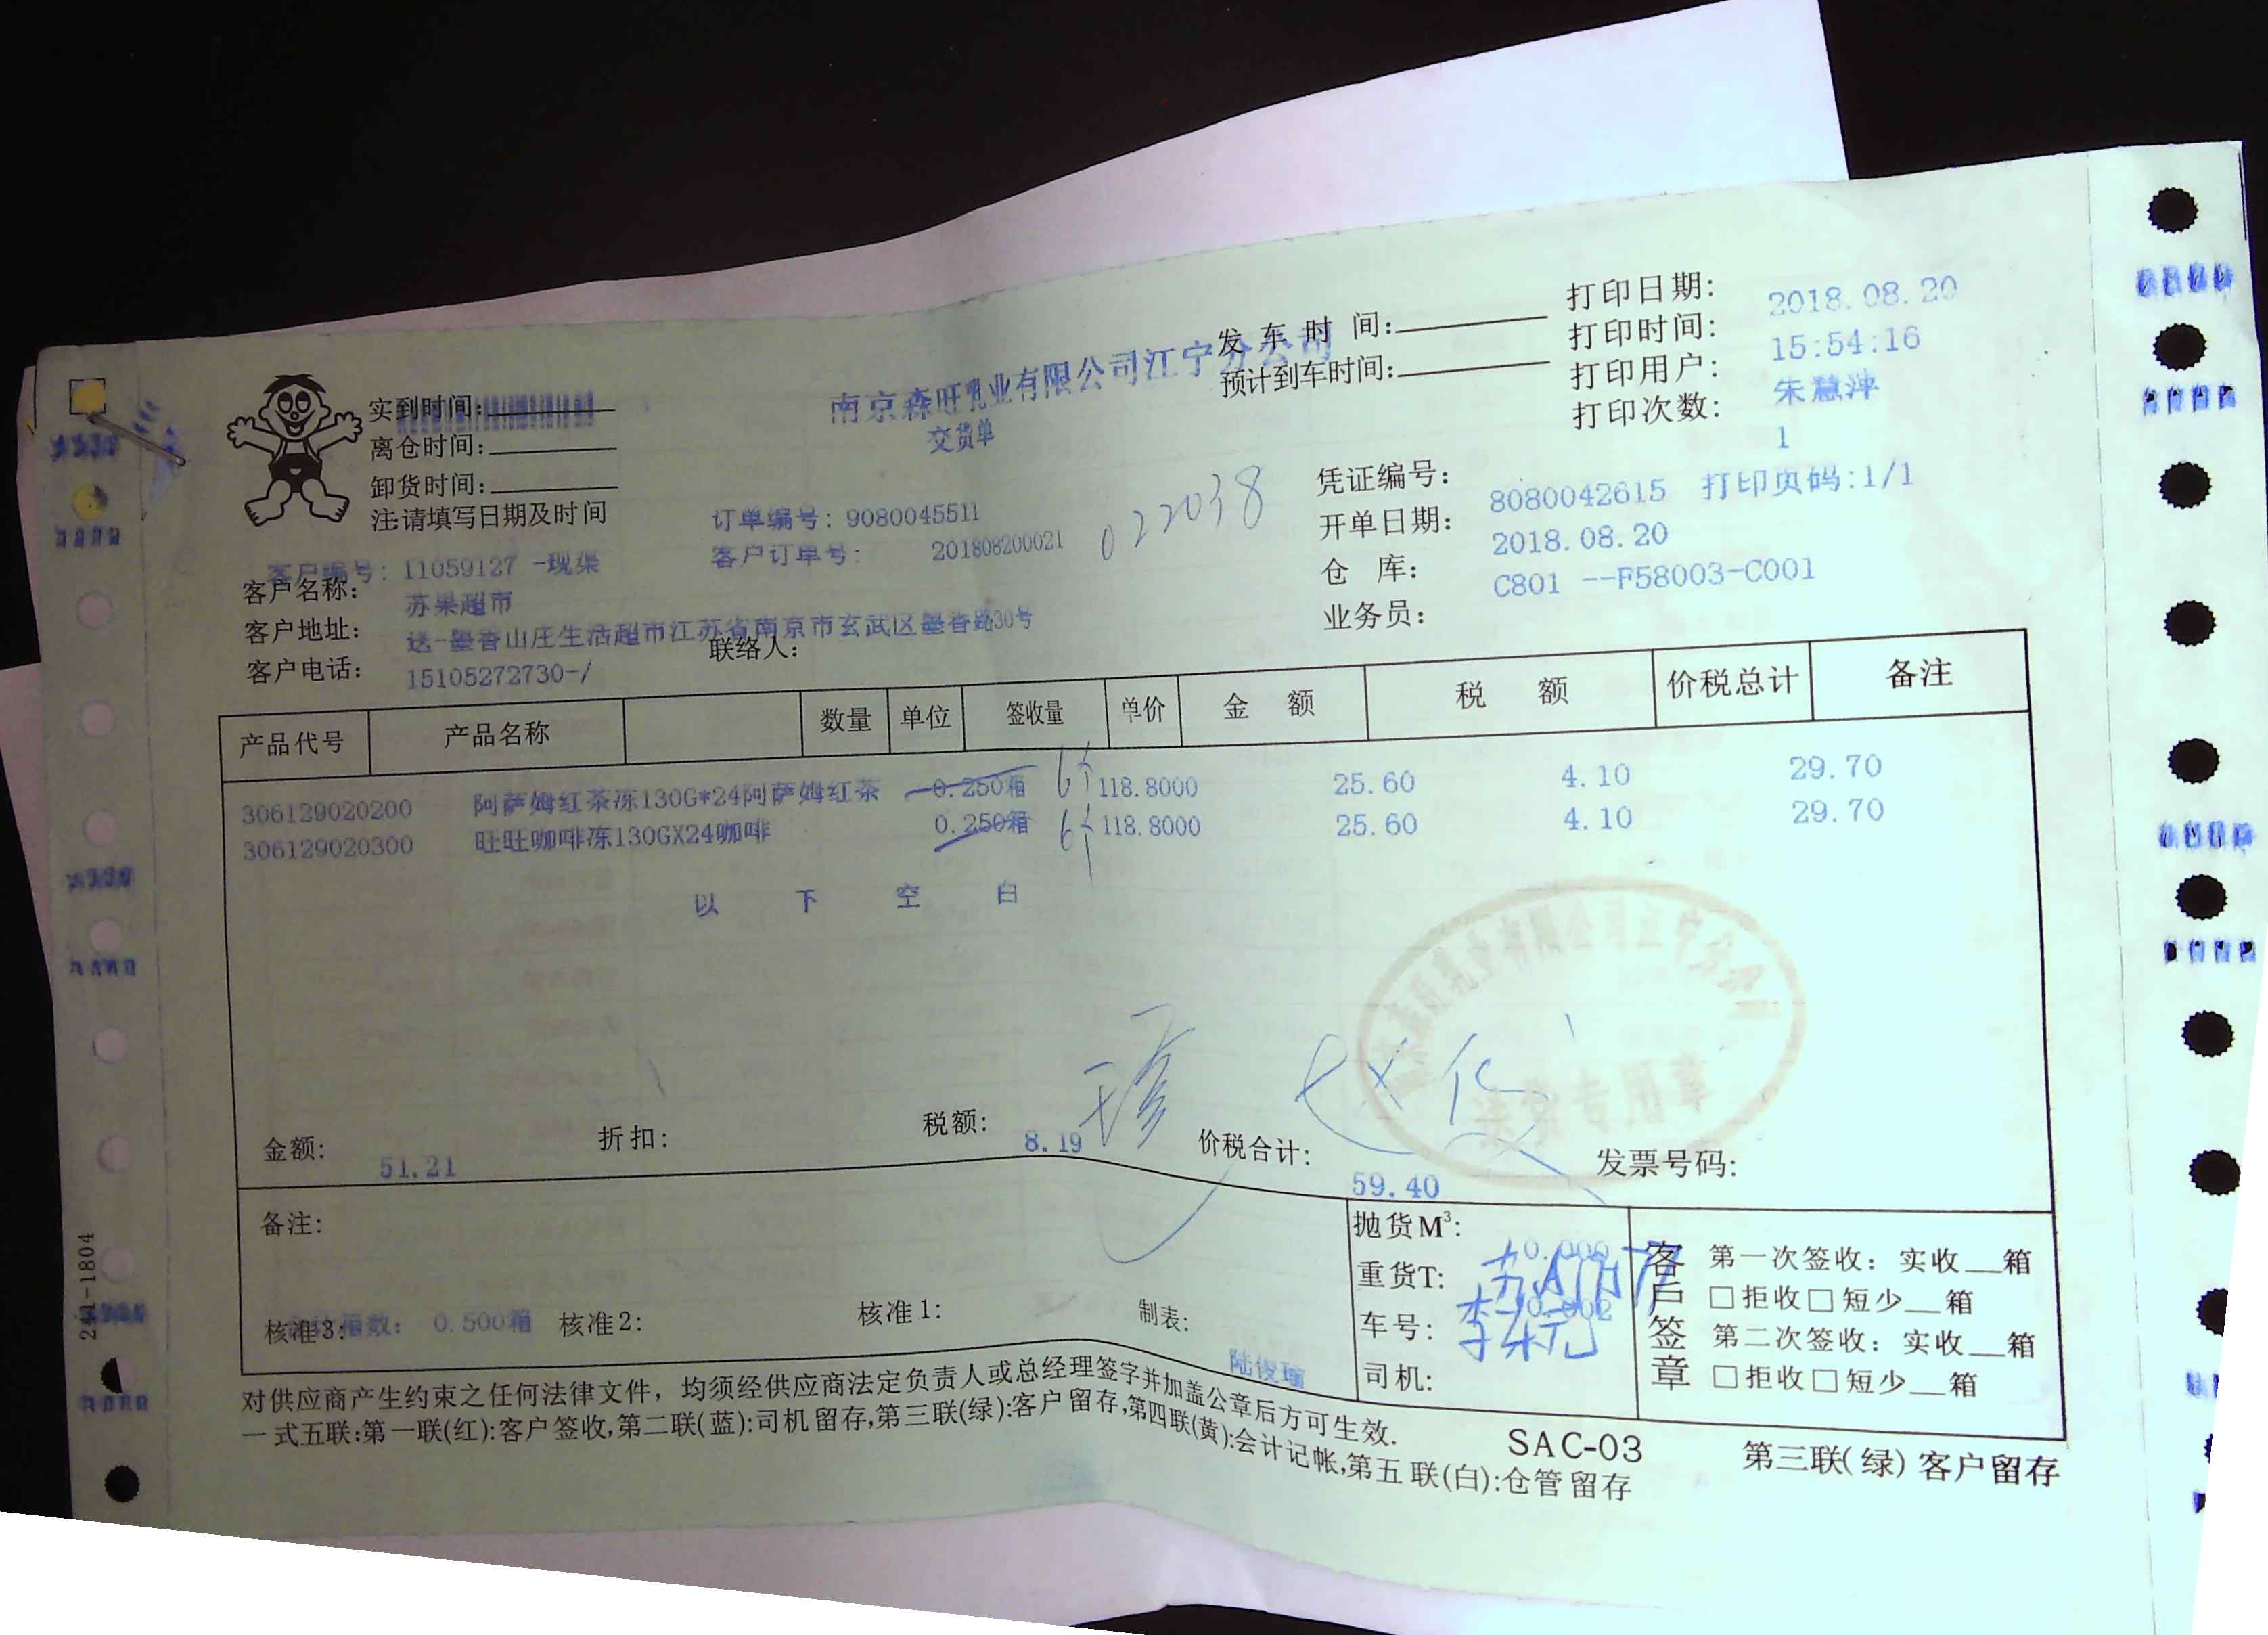 南京森旺乳业有限公司江宁分公司
交货单
发车时间:
预计到车时间:
打印日期: 2018.08.20
打印时间: 15:54:16
打印用户: 朱慧萍
打印次数: 1
实到时间:
离仓时间:
卸货时间:
注:请填写日期及时间
订单编号: 9080045511
客户订单号: 201808200021
022038
凭证编号: 8080042615 打印页码:1/1
开单日期: 2018.08.20
仓 库: C801 --F58003-C001
业务员:
客户编号: 11059127 -现渠
客户名称: 苏果超市
客户地址: 送-墨香山庄生活超市江苏省南京市玄武区墨香路30号
客户电话: 15105272730-/
联络人:
产品代号 产品名称 数量 单位 签收量 单价 金 额 税 额 价税总计 备注
306129020200 阿萨姆红茶冻130G*24阿萨姆红茶 0.250箱 6个 118.8000 25.60 4.10 29.70
306129020300 旺旺咖啡冻130GX24咖啡 0.250箱 6个 118.8000 25.60 4.10 29.70
以 下 空 白
金额: 51.21 折扣: 税额: 8.19 价税合计: 59.40 发票号码:
备注:
抛货M³:
重货T:
车号:
司机:
核准3: 箱数: 0.500箱 核准2: 核准1: 制表: 陆俊瑜
客户签章
第一次签收: 实收__箱
□拒收□短少__箱
第二次签收: 实收__箱
□拒收□短少__箱
对供应商产生约束之任何法律文件，均须经供应商法定负责人或总经理签字并加盖公章后方可生效.
一式五联:第一联(红):客户签收,第二联(蓝):司机留存,第三联(绿):客户留存,第四联(黄):会计记帐,第五联(白):仓管留存
SAC-03
第三联(绿)客户留存